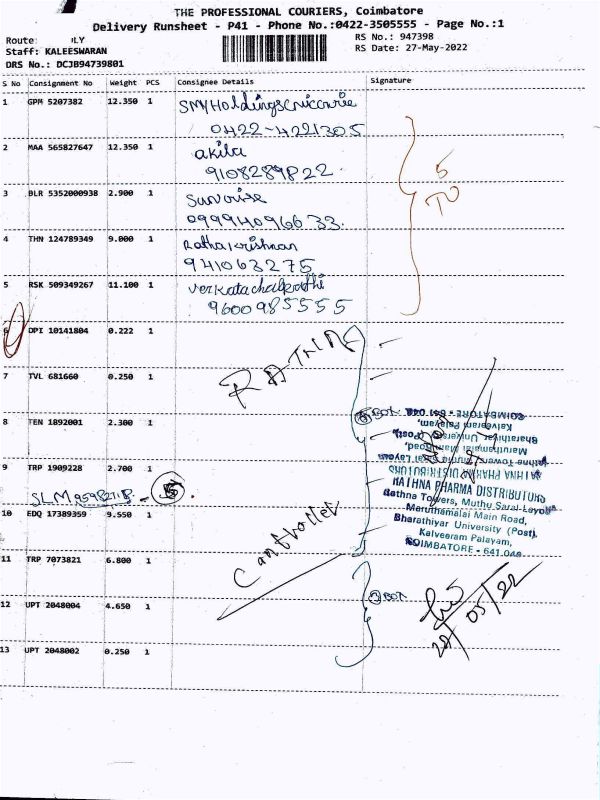 THE PROFESSIONAL COURIERS, Coimbatore
Delivery Runsheet - P41 - Phone No.:0422-3505555 - Page No.:1
Route: ILY RS No.: 947398
Staff: KALEESWARAN RS Date: 27-May-2022
DRS No.: DCJB94739801
S No Consignment No Weight PCS Consignee Details Signature
1 GPM 5207382 12.350 1
0422-4221305
2 MAA 565827647 12.350 1 akila
9108289822
3 BLR 5352000938 2.900 1 Sunrise
09994096633.
4 THN 124789349 9.000 1 Rathakrishnan
941063275
5 RSK 509349267 11.100 1
9600985555
5
TO
6 DPI 10141804 0.222 1
RATHNA
7 TVL 681660 0.250 1
8 TEN 1892001 2.300 1
BOX
9 TRP 1909228 2.700 1
SLM 5
RATHNA PHARMA DISTRIBUTORS
Rathna Towers, Muthu Sarai Layout
Maruthamalai Main Road,
Bharathiyar University (Post),
Kalveeram Palayam,
COIMBATORE - 641 046
10 EDQ 17389359 9.550 1
11 TRP 7073821 6.800 1
12 UPT 2048004 4.650 1
BOX
13 UPT 2048002 0.250 1